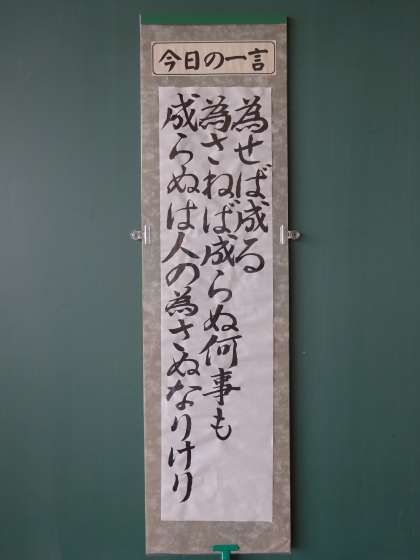 今日の一言
為せば成る
為さねば成らぬ何事も
成らぬは人の為さぬなりけり